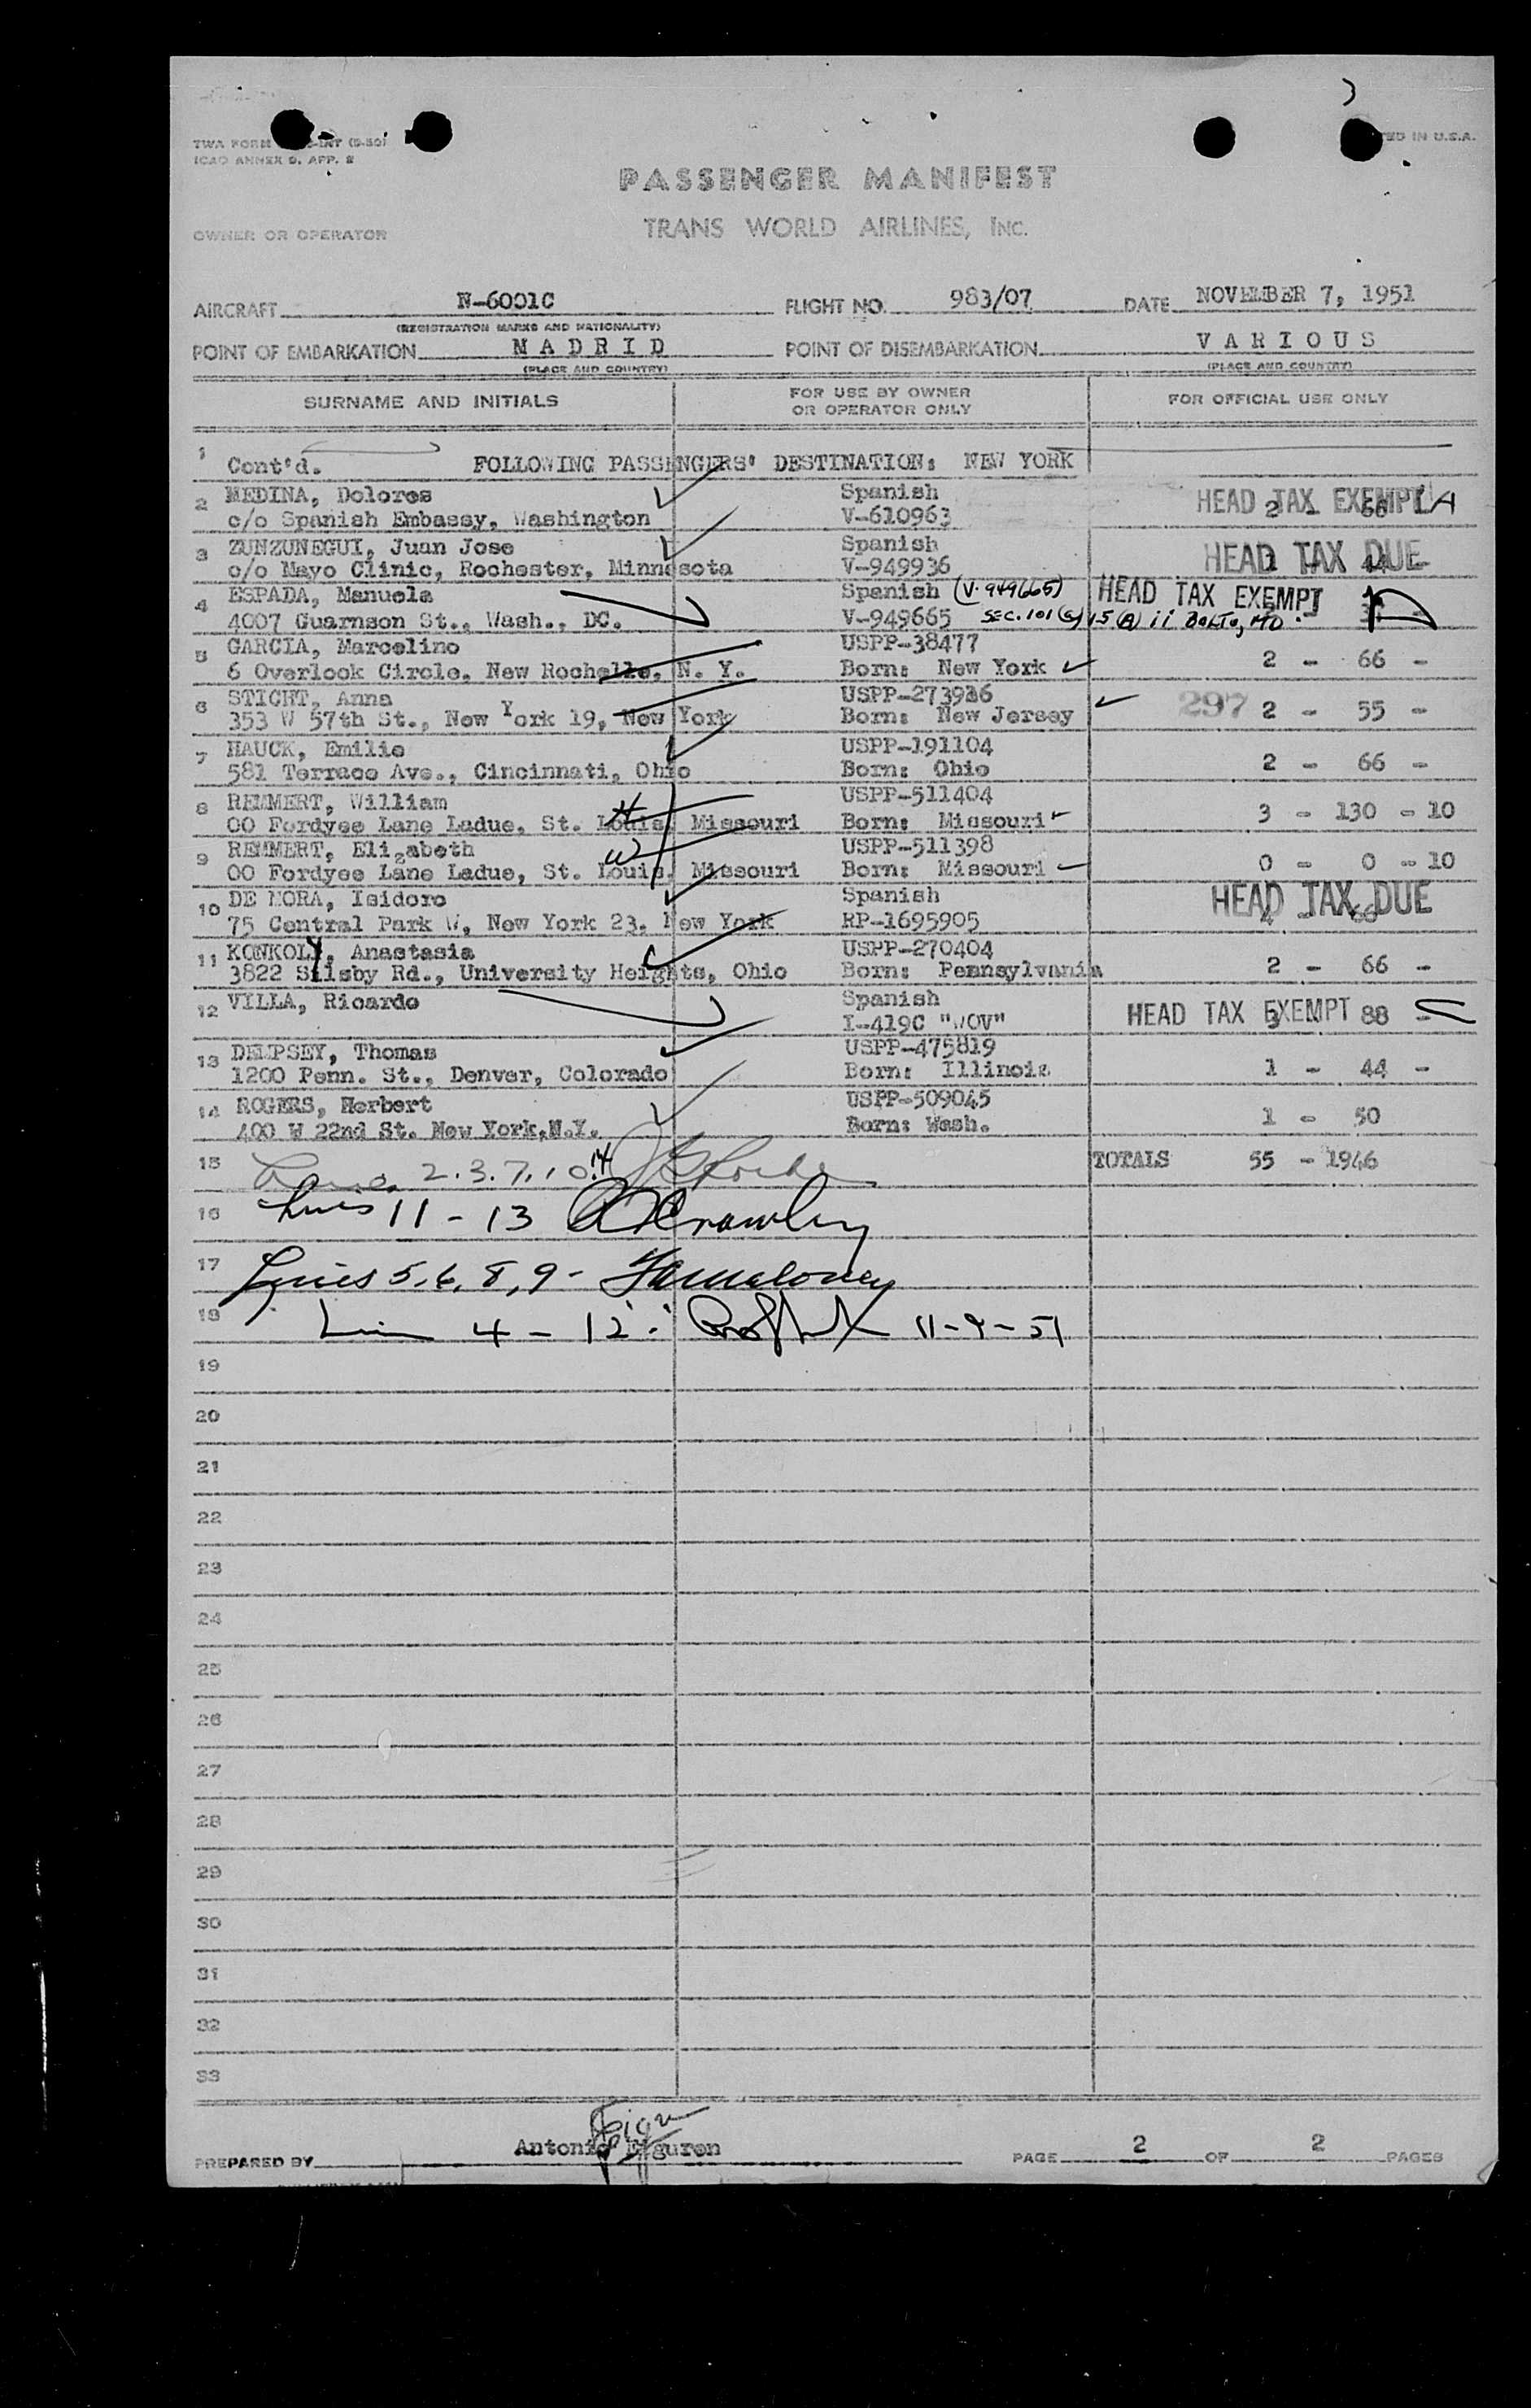 TWA FORM
ICAO ANNEX 9, APP. 2
TED IN U.S.A.
PASSENGER MANIFEST
TRANS WORLD AIRLINES, INC.
OWNER OR OPERATOR
AIRCRAFT N-6001C FLIGHT NO. 983/07 DATE NOVEMBER 7, 1951
(REGISTRATION MARKS AND NATIONALITY)
POINT OF EMBARKATION MADRID POINT OF DISEMBARKATION VARIOUS
(PLACE AND COUNTRY) (PLACE AND COUNTRY)
SURNAME AND INITIALS FOR USE BY OWNER OR OPERATOR ONLY FOR OFFICIAL USE ONLY
1 Cont'd. FOLLOWING PASSENGERS' DESTINATION: NEW YORK
2 MEDINA, Dolores Spanish HEAD TAX EXEMPT 2 - 66
c/o Spanish Embassy, Washington V-610963
3 ZUNZUNEGUI, Juan Jose Spanish HEAD TAX DUE
c/o Mayo Clinic, Rochester, Minnesota V-949936
4 ESPADA, Manuela Spanish (V-949665) HEAD TAX EXEMPT
4007 Guarnson St., Wash., DC. V-949665 SEC. 101 (a) 15 (A) ii BALTO, MD.
5 GARCIA, Marcelino USPP-38477
6 Overlook Circle, New Rochelle, N. Y. Born: New York 2 - 66 -
6 STICHT, Anna USPP-273936
353 W 57th St., New York 19, New York Born: New Jersey 297 2 - 55 -
7 HAUCK, Emilie USPP-191104
581 Terrace Ave., Cincinnati, Ohio Born: Ohio 2 - 66 -
8 REMMERT, William H USPP-511404
00 Fordyce Lane Ladue, St. Louis, Missouri Born: Missouri 3 - 130 - 10
9 REMMERT, Elizabeth W USPP-511398
00 Fordyce Lane Ladue, St. Louis, Missouri Born: Missouri 0 - 0 - 10
10 DE MORA, Isidoro Spanish HEAD TAX DUE 4 - 66
75 Central Park W, New York 23, New York RP-1695905
11 KONKOLY, Anastasia USPP-270404
3822 Silsby Rd., University Heights, Ohio Born: Pennsylvania 2 - 66 -
12 VILLA, Ricardo Spanish HEAD TAX EXEMPT 3 88 -
I-419C "WOV"
13 DEMPSEY, Thomas USPP-475819
1200 Penn. St., Denver, Colorado Born: Illinois 1 - 44 -
14 ROGERS, Herbert USPP-509045
400 W 22nd St. New York, N.Y. Born: Wash. 1 - 50
15 2.3.7.10.14 TOTALS 55 - 1946
16 Lines 11 - 13 Crowley
17 Lines 5, 6, 8, 9 - Maloney
18 4 - 12 11-9-51
19
20
21
22
23
24
25
26
27
28
29
30
31
32
33
PREPARED BY Antonio Eiguren PAGE 2 OF 2 PAGES